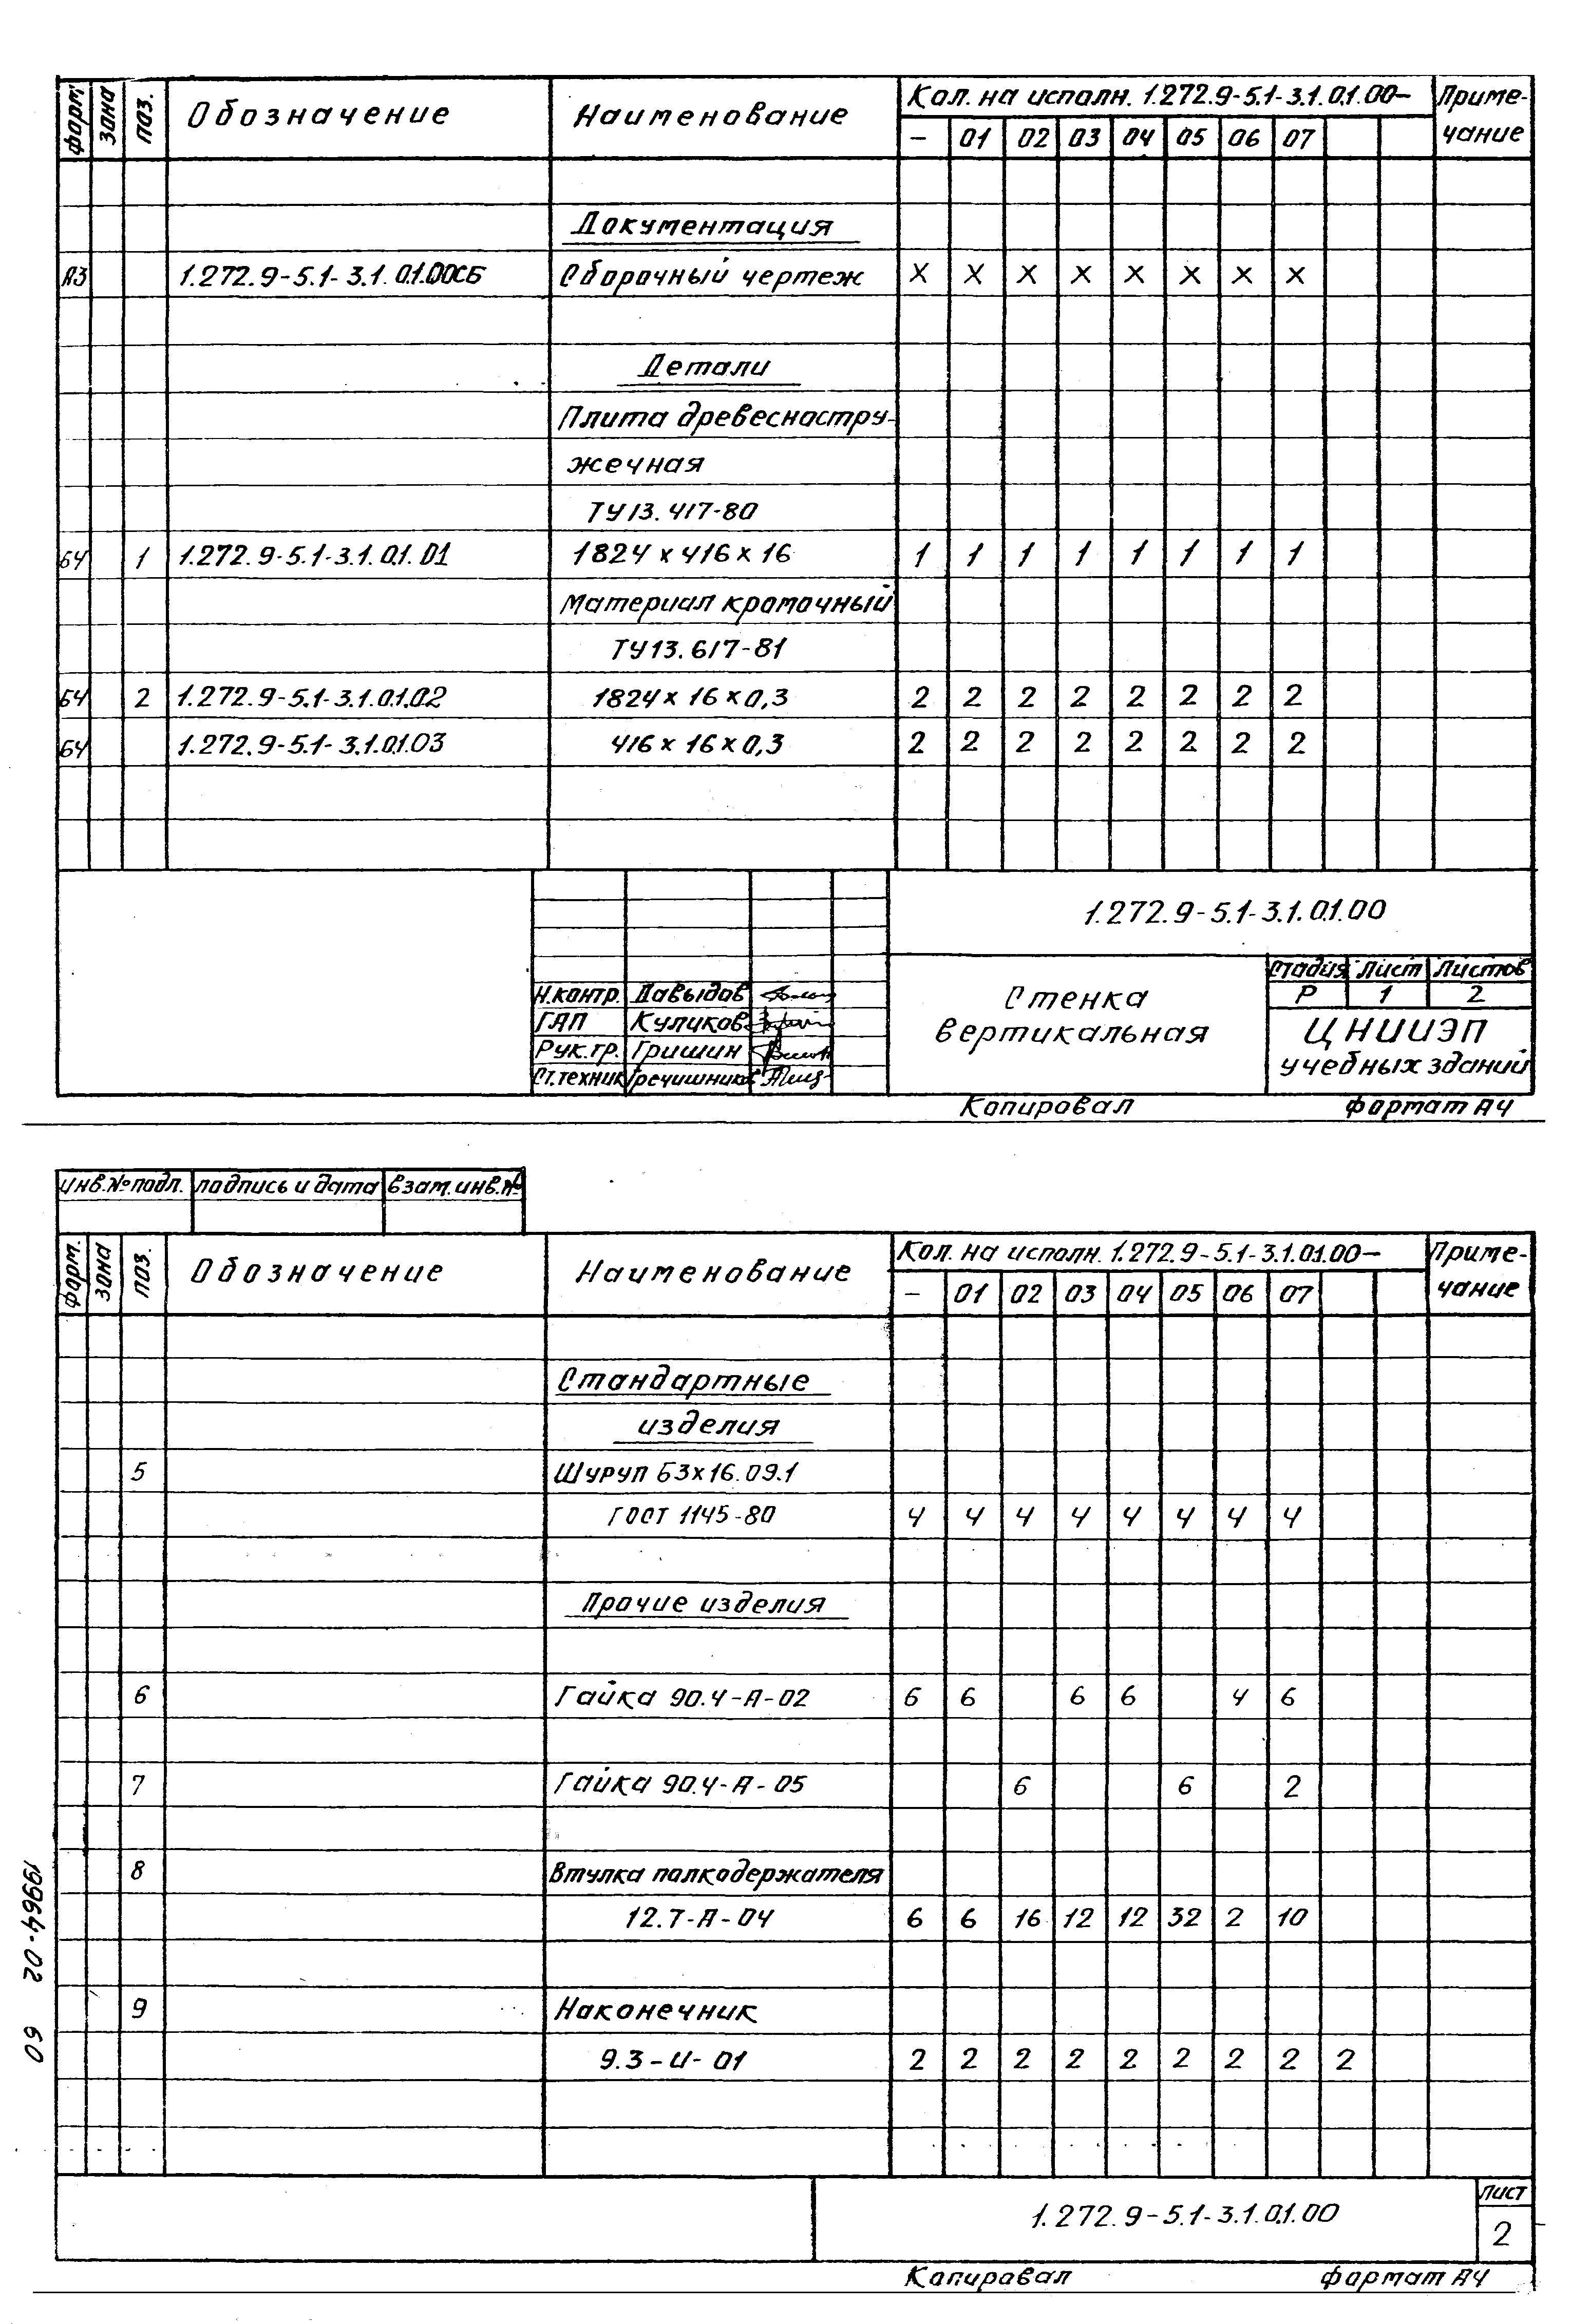 форм. зона поз. Обозначение Наименование Кол. на исполн. 1.272.9-5.1-3.1.01.00- Приме-
- 01 02 03 04 05 06 07 чание
Документация
А3 1.272.9-5.1-3.1.01.00СБ Сборочный чертеж X X X X X X X X
Детали
Плита древесностру-
жечная
ТУ13.417-80
БЧ 1 1.272.9-5.1-3.1.01.01 1824 x 416 x 16 1 1 1 1 1 1 1 1
Материал кромочный
ТУ13.617-81
БЧ 2 1.272.9-5.1-3.1.01.02 1824 x 16 x 0,3 2 2 2 2 2 2 2 2
БЧ 1.272.9-5.1-3.1.01.03 416 x 16 x 0,3 2 2 2 2 2 2 2 2
1.272.9-5.1-3.1.01.00
Стадия Лист Листов
Н.контр. Давыдов Стенка Р 1 2
ГАП Куликов вертикальная ЦНИИЭП
Рук.гр. Гришин учебных зданий
Ст.техник Гречишников
Копировал формат А4
инв.№ подл. подпись и дата взам.инв.№
форм. зона поз. Обозначение Наименование Кол. на исполн. 1.272.9-5.1-3.1.01.00- Приме-
- 01 02 03 04 05 06 07 чание
Стандартные
изделия
5 Шуруп Б3х16.09.1
ГОСТ 1145-80 4 4 4 4 4 4 4 4
Прочие изделия
6 Гайка 90.4-А-02 6 6 6 6 4 6
7 Гайка 90.4-А-05 6 6 2
8 Втулка полкодержателя
12.7-А-04 6 6 16 12 12 32 2 10
9 Наконечник
9.3-И-01 2 2 2 2 2 2 2 2 2
1.272.9-5.1-3.1.01.00 Лист
2
Копировал формат А4
19964-02 60